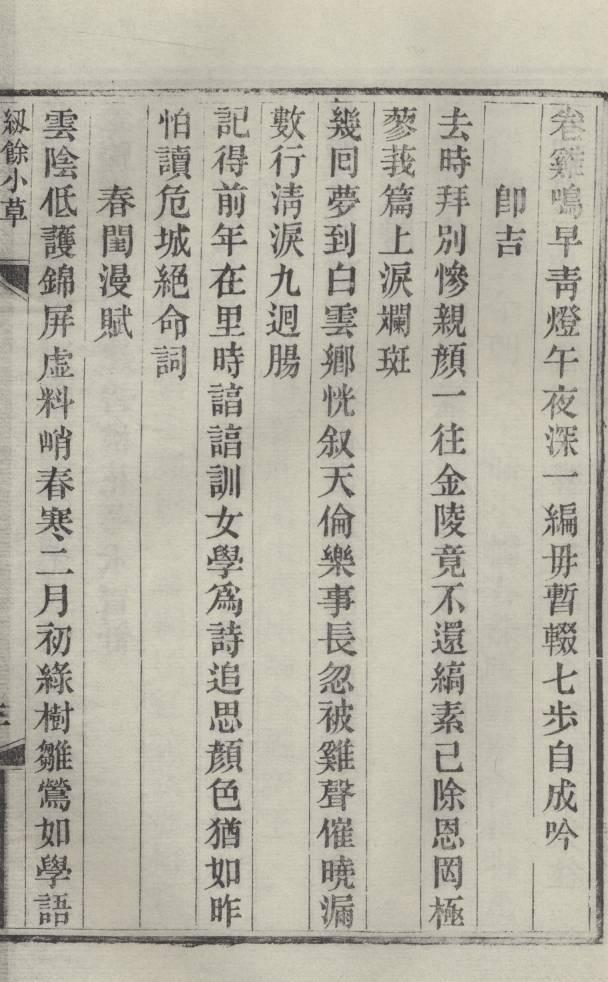 卷雞鳴早青燈午夜深一編毋暫輟七步自成吟
卽吉
去時拜別慘親顏一往金陵竟不還縞素已除恩罔極
蓼莪篇上淚斕斑
幾回夢到白雲鄉恍叙天倫樂事長忽被雞聲催曉漏
數行淸淚九迴腸
記得前年在里時諄諄訓女學爲詩追思顏色猶如昨
怕讀危城絕命詞
春閨漫賦
雲陰低護錦屏虛料峭春寒二月初綠樹雛鶯如學語
紉餘小草